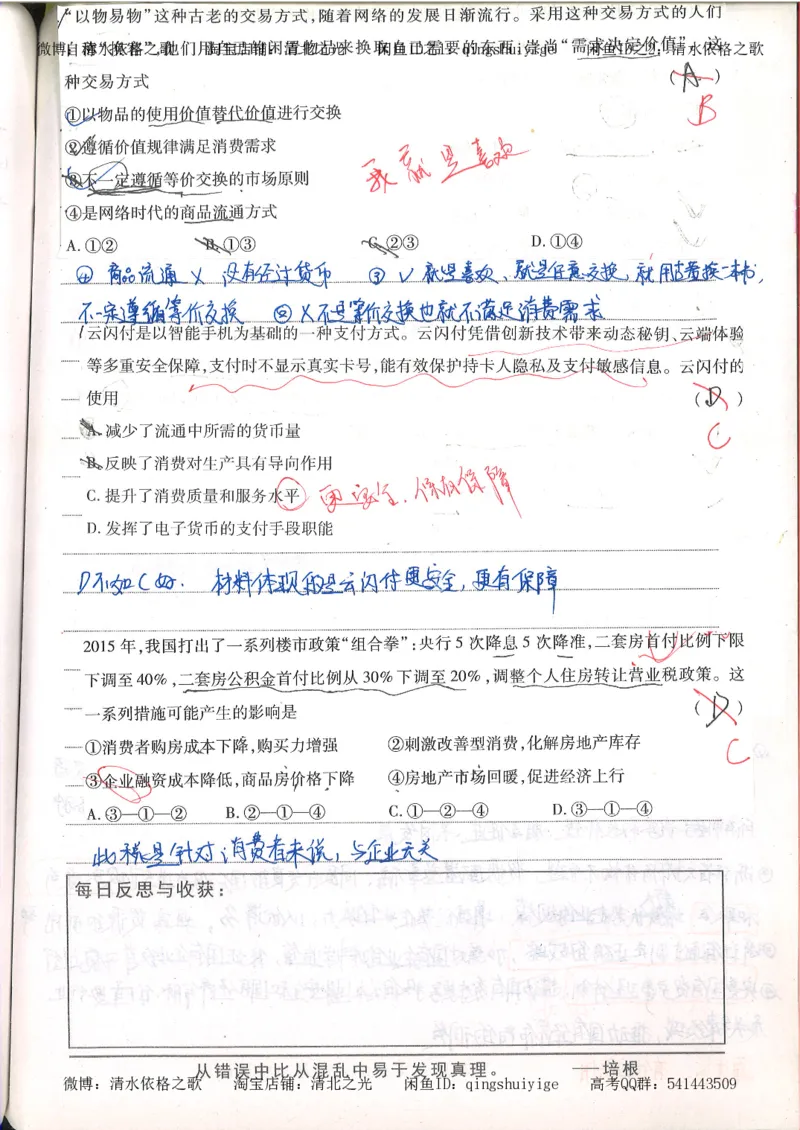 “以物易物”这种古老的交易方式,随着网络的发展日渐流行。采用这种交易方式的人们
自称“换客”,他们用自己的闲置物品来换取自己需要的东西,崇尚“需求决定价值”。这
微博：清水依格之歌 淘宝店铺：清北之光 闲鱼ID：qingshuiyige 闲鱼ID之2：清水依格之歌
种交易方式 ( A )
B
①以物品的使用价值替代价值进行交换
②遵循价值规律满足消费需求
③不一定遵循等价交换的市场原则
我就是喜欢
④是网络时代的商品流通方式
A.①② B.①③ C.②③ D.①④
④ 商品流通 X 没有经过货币 ③ √ 就是喜欢、就是任意交换,就用古董换一本书,
不一定遵循等价交换 ② X 不是等价交换也就不满足消费需求
云闪付是以智能手机为基础的一种支付方式。云闪付凭借创新技术带来动态秘钥、云端体验
等多重安全保障,支付时不显示真实卡号,能有效保护持卡人隐私及支付敏感信息。云闪付的
使用 ( D )
C
A.减少了流通中所需的货币量
B.反映了消费对生产具有导向作用
C.提升了消费质量和服务水平 更安全、保权保障
D.发挥了电子货币的支付手段职能
D不如C好. 材料体现的是云闪付更安全,更有保障
2015年,我国打出了一系列楼市政策“组合拳”:央行5次降息5次降准,二套房首付比例下限
下调至40%,二套房公积金首付比例从30%下调至20%,调整个人住房转让营业税政策。这
一系列措施可能产生的影响是 ( D )
C
①消费者购房成本下降,购买力增强 ②刺激改善型消费,化解房地产库存
③企业融资成本降低,商品房价格下降 ④房地产市场回暖,促进经济上行
A.③—①—② B.②—①—④ C.①—②—④ D.③—①—④
此题是针对消费者来说,与企业无关
每日反思与收获:
从错误中比从混乱中易于发现真理。 ——培根
微博：清水依格之歌 淘宝店铺：清北之光 闲鱼ID：qingshuiyige 高考QQ群：541443509